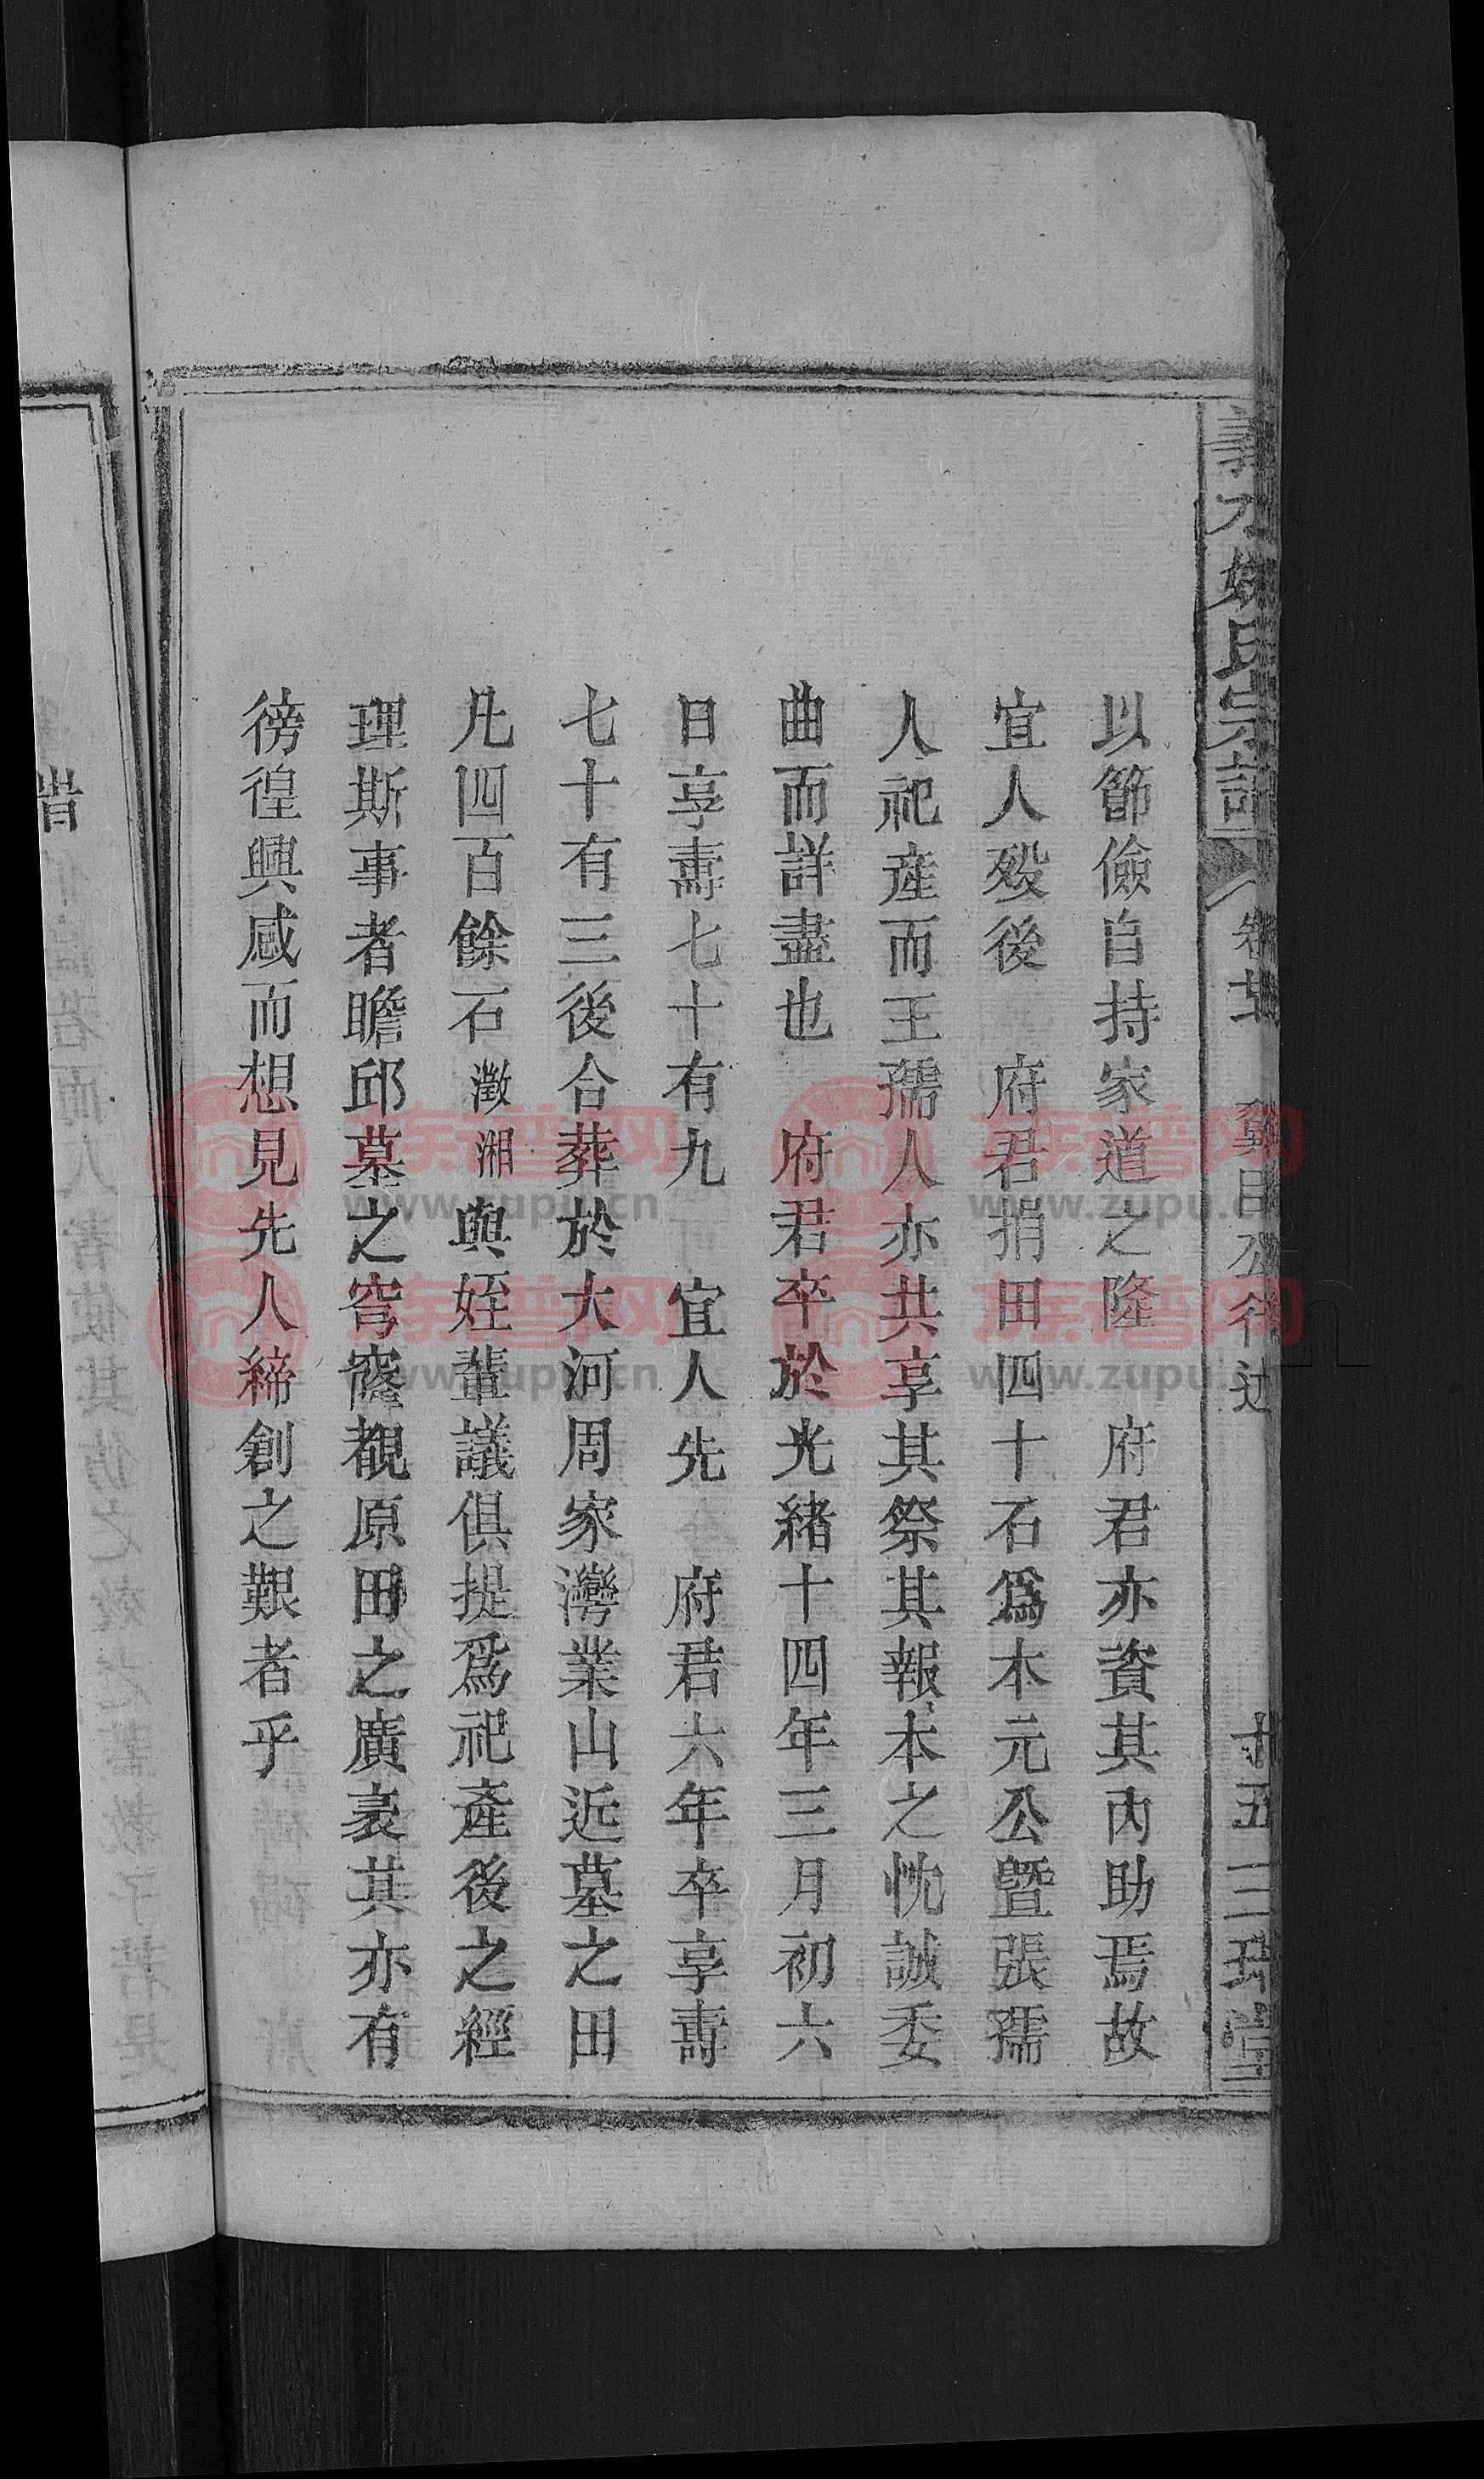 義水姚氏宗譜
卷廿
公行述
十五
三瑞堂
以節儉自持家道之隆　府君亦資其內助焉故
宜人殁後　府君捐田四十石爲本元公暨張孺
人祀產而王孺人亦共享其祭其報本之忱誠委
曲而詳盡也　府君卒於光緒十四年三月初六
日享壽七十有九　宜人先　府君六年卒享壽
七十有三後合葬於大河周家灣業山近墓之田
凡四百餘石澂湘與姪輩議俱提爲祀產後之經
理斯事者瞻邱墓之穹窿覩原田之廣袤其亦有
徬徨興感而想見先人締創之艱者乎